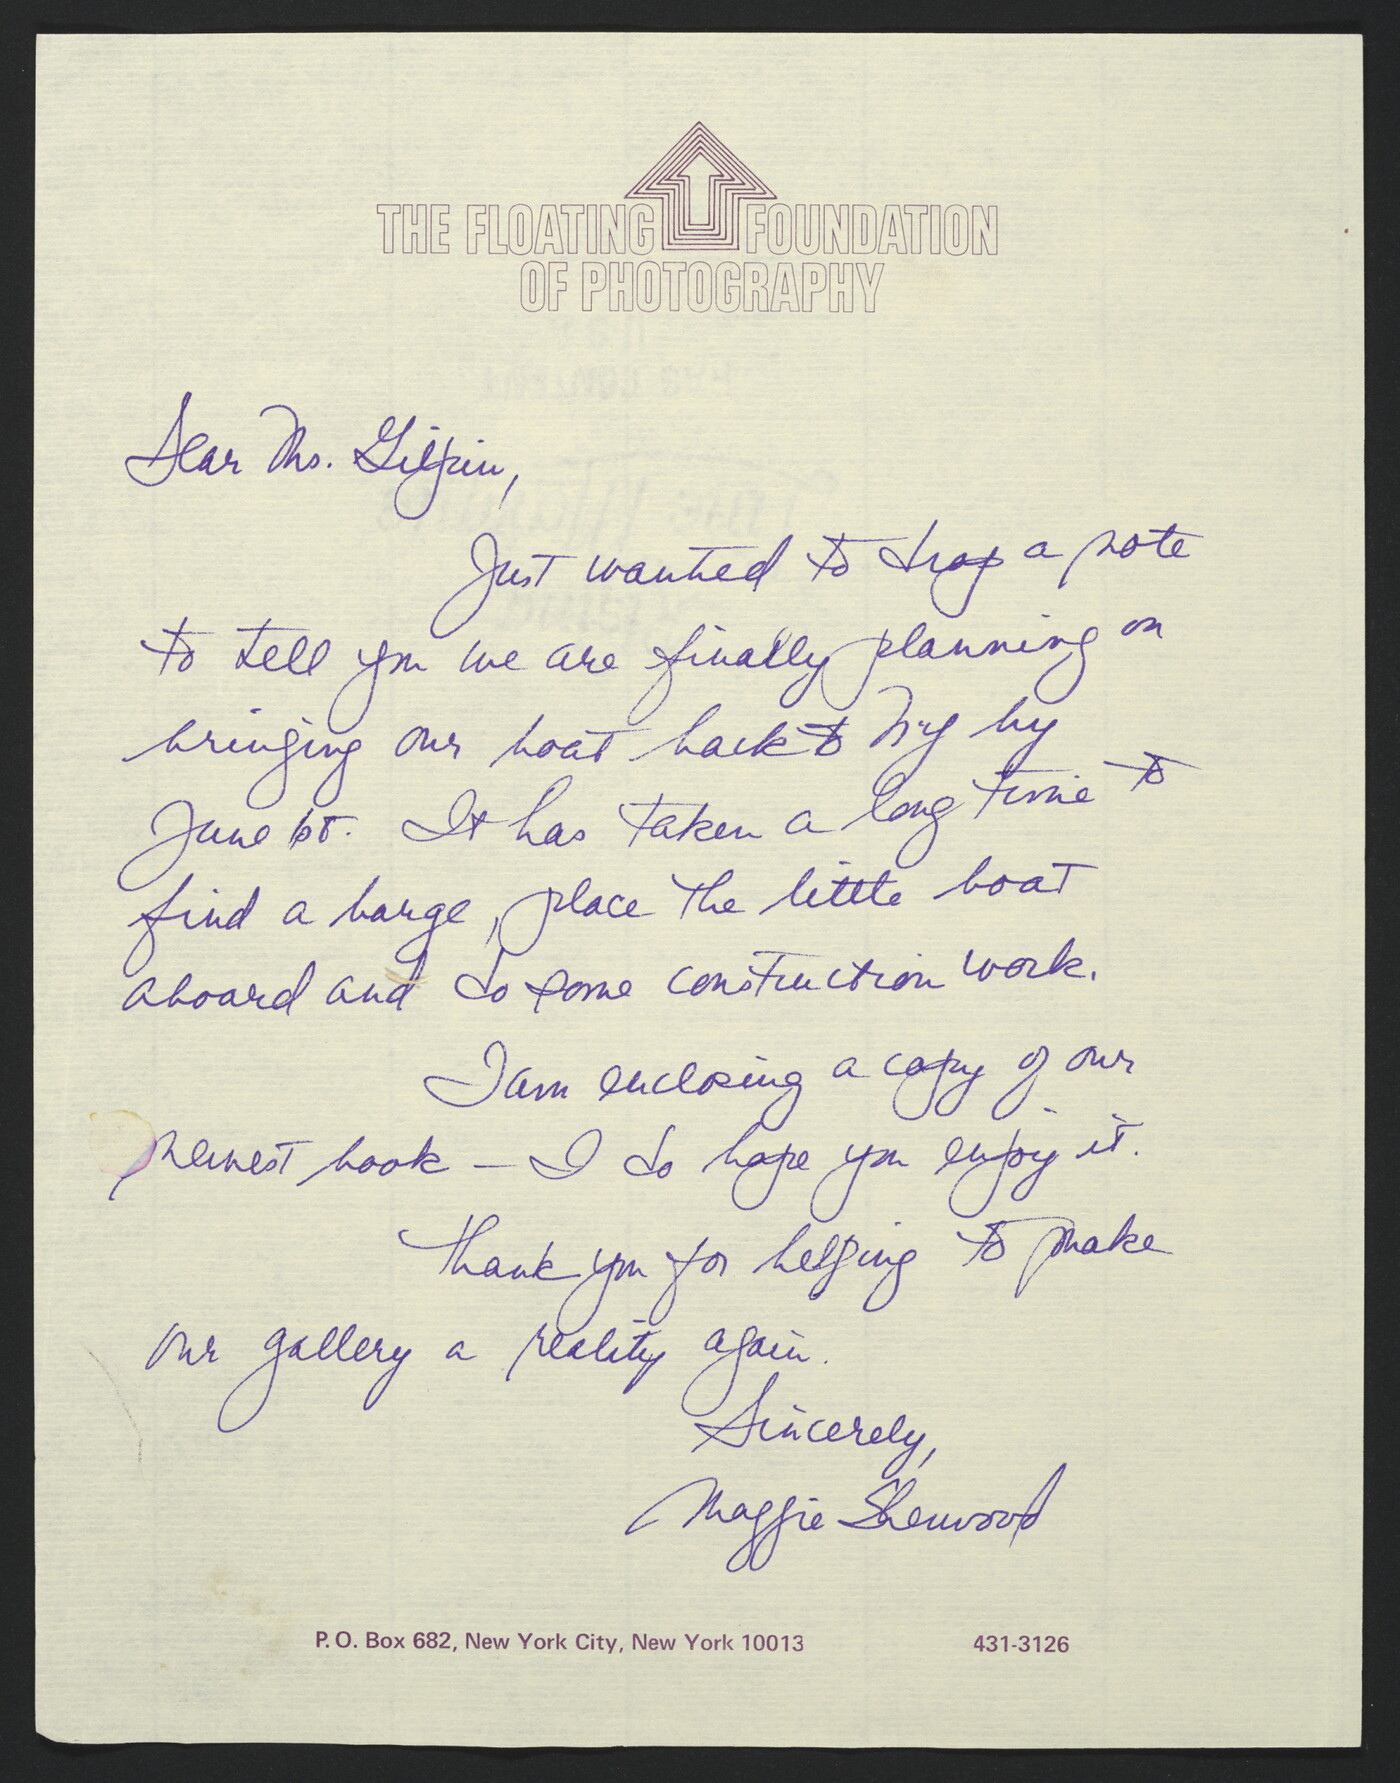 THE FLOATING FOUNDATION
OF PHOTOGRAPHY
Dear Ms. Gilpin,
Just wanted to drop a note
to tell you we are finally planning on
bringing our boat back to NY by
June 1st. It has taken a long time to
find a barge, place the little boat
aboard and do some construction work.
I am enclosing a copy of our
newest book – I do hope you enjoy it.
Thank you for helping to make
our gallery a reality again.
Sincerely,
Maggie Sherwood
P.O. Box 682, New York City, New York 10013 431-3126